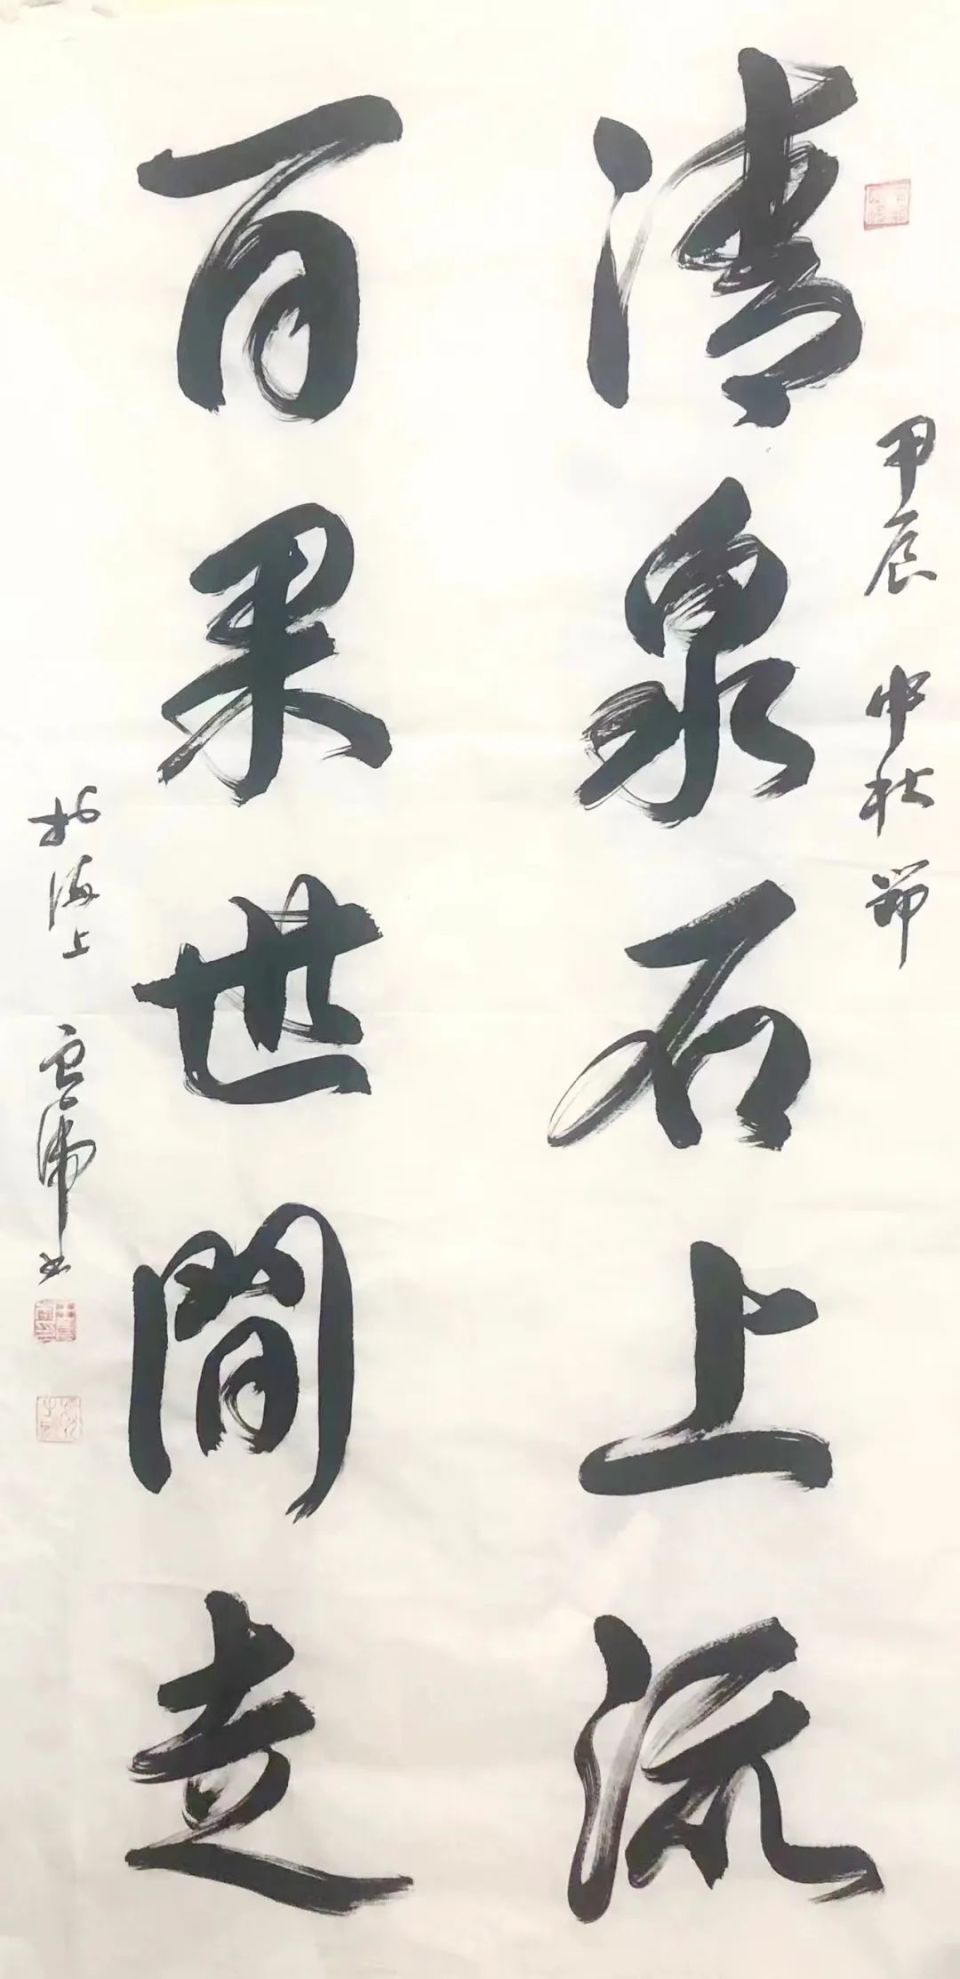 甲辰 中秋節
清泉石上流
百果世間走
於海上 雲沸书